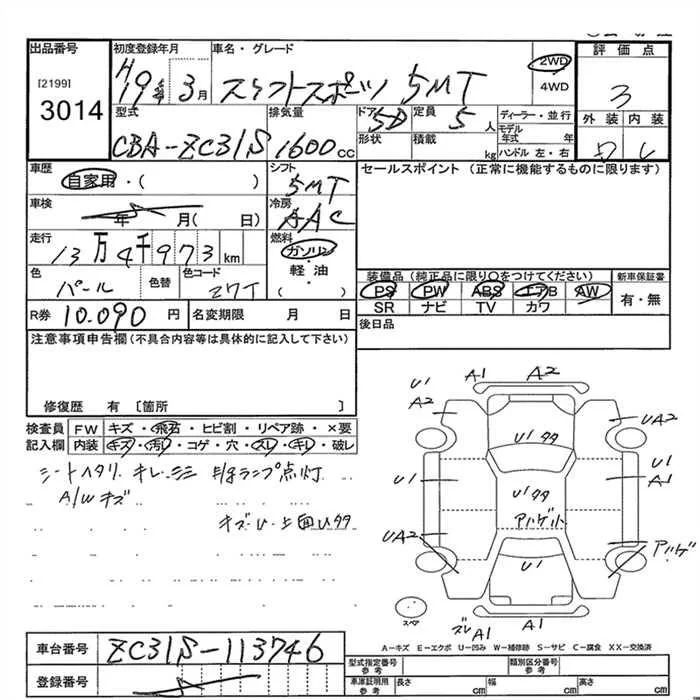 出品番号
[2199]
3014
初度登録年月
H19年 3月
車名・グレード
スイフトスポーツ 5MT
2WD
4WD
評価点
3
外装 内装
D C
型式
CBA-ZC31S
排気量
1600cc
ドア
5D
形状
定員
5人
積載
kg
ディーラー・並行
モデル年式 年
ハンドル 左・右
車歴
自家用・( )
シフト
5MT
車検
年 月( 日)
冷房
AAC
走行
13万4千973km
燃料
ガソリン
・
軽・油
( ・ )
色
パール
色替
色コード
Z7T
セールスポイント (正常に機能するものに限ります)
装備品(純正品に限り○をつけてください)
PS PW ABS エアB AW
SR ナビ TV カワ
新車保証書
有・無
R券 10.090 円
名変期限 月 日
後日品
注意事項申告欄(不具合内容等は具体的に記入して下さい)
修復歴 有 〔箇所 〕
検査員記入欄
FW キズ・飛石・ヒビ割・リペア跡・×要
内装 キズ・汚れ・コゲ・穴・スレ・キレ・破レ
シートヘタリ キレ シミ
ランプ点灯
A/Wキズ
キズU 上面Uタタ
A1 A2
U1
A2
UA2
Uタタ
U1
U1
A1
U1タタ
アハゲ
UA2
アハゲ
U1
スペア
ズレ A1
A1
A-キズ E-エクボ U-凹み W-補修跡 S-サビ C-腐食 XX-交換済
車台番号
ZC31S-113746
登録番号
型式指定番号
参考
類別区分番号
参考
車庫証明用
参考
長さ cm
幅 cm
高さ cm